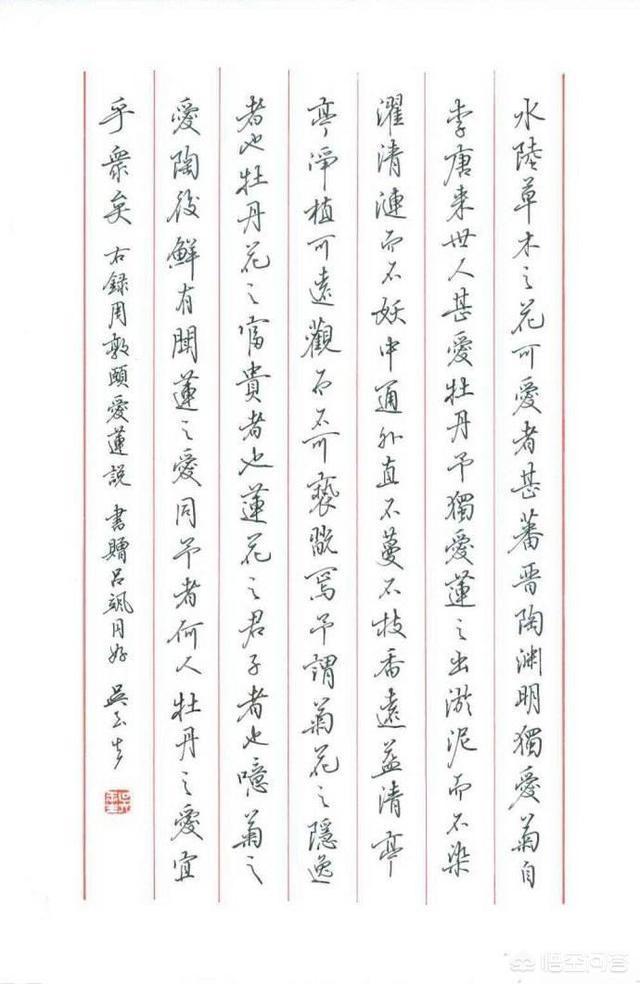 水陸草木之花可愛者甚蕃晉陶淵明獨愛菊自
李唐来世人甚愛牡丹予獨愛蓮之出淤泥而不染
濯清漣而不妖中通外直不蔓不枝香遠益清亭
亭淨植可遠觀而不可褻翫焉予謂菊花之隱逸
者也牡丹花之富貴者也蓮花之君子者也噫菊之
愛陶後鮮有聞蓮之愛同予者何人牡丹之愛宜
乎眾矣 右録周敦頤愛蓮説 書贈呂颯同好 吳玉生
悟空问答